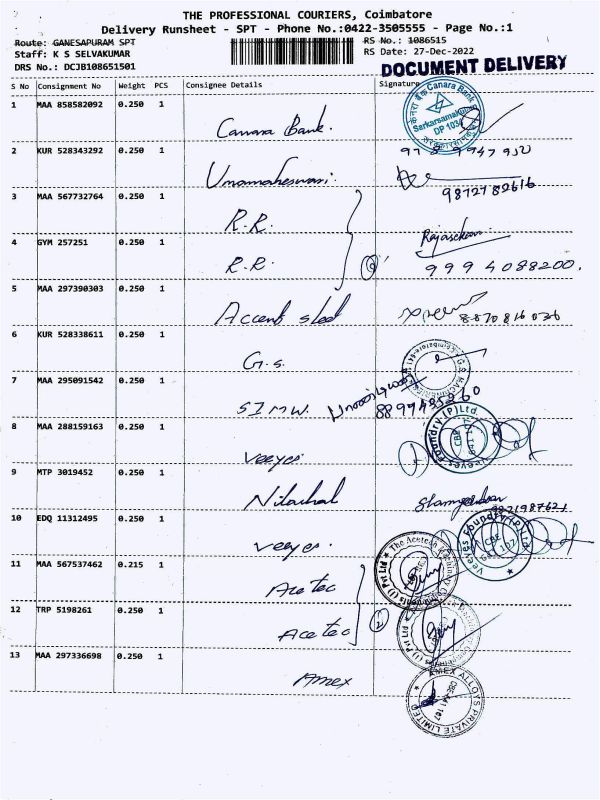 THE PROFESSIONAL COURIERS, Coimbatore
Delivery Runsheet - SPT - Phone No.:0422-3505555 - Page No.:1
Route: GANESAPURAM SPT RS No.: 1086515
Staff: K S SELVAKUMAR RS Date: 27-Dec-2022
DRS No.: DCJB108651501 DOCUMENT DELIVERY
S No Consignment No Weight PCS Consignee Details Signature
1 MAA 858582092 0.250 1 Canara Bank.
Canara Bank
DP 1034
2 KUR 528343292 0.250 1 Umamaheswari.
9872782616
3 MAA 567732764 0.250 1 R.R.
4 GYM 257251 0.250 1 R.R. Rajasekar
9994088200.
5 MAA 297390303 0.250 1 Accent steel
8870816036
6 KUR 528338611 0.250 1 G.S.
7 MAA 295091542 0.250 1 SIMW.
8 MAA 288159163 0.250 1 veeyes
Veeyes Foundry (P) Ltd.
CBE
641 107
9 MTP 3019452 0.250 1 Nilachal
10 EDQ 11312495 0.250 1 veeyes.
Veeyes Foundry (P) Ltd.
CBE
641 107
11 MAA 567537462 0.215 1 Ace tec
The Acetech Machinery Components (I) Pvt Ltd
12 TRP 5198261 0.250 1 Ace tec
13 MAA 297336698 0.250 1 Amex
AMEX ALLOYS PRIVATE LIMITED
CBE-641 107